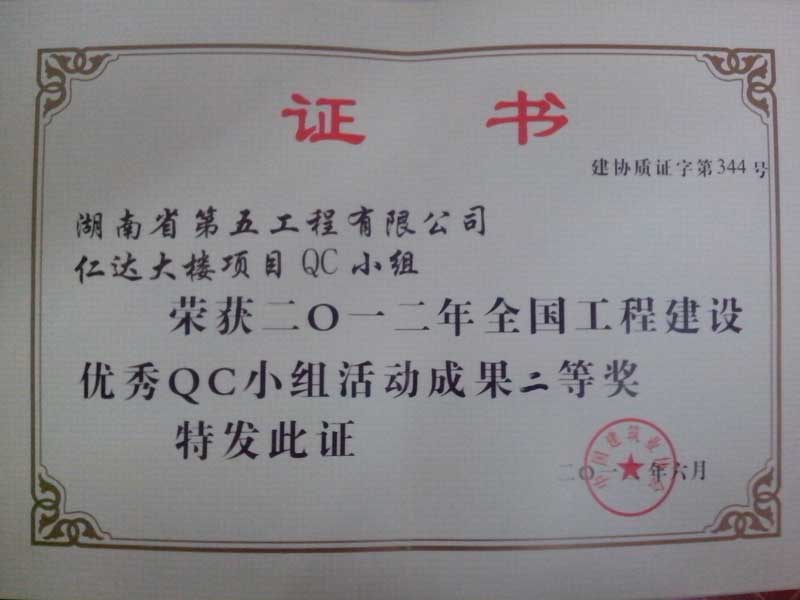 证书
建协质证字第344号
湖南省第五工程有限公司
仁达大楼项目QC小组
荣获二〇一二年全国工程建设
优秀QC小组活动成果二等奖
特发此证
中国建筑业协会
二〇一二年六月